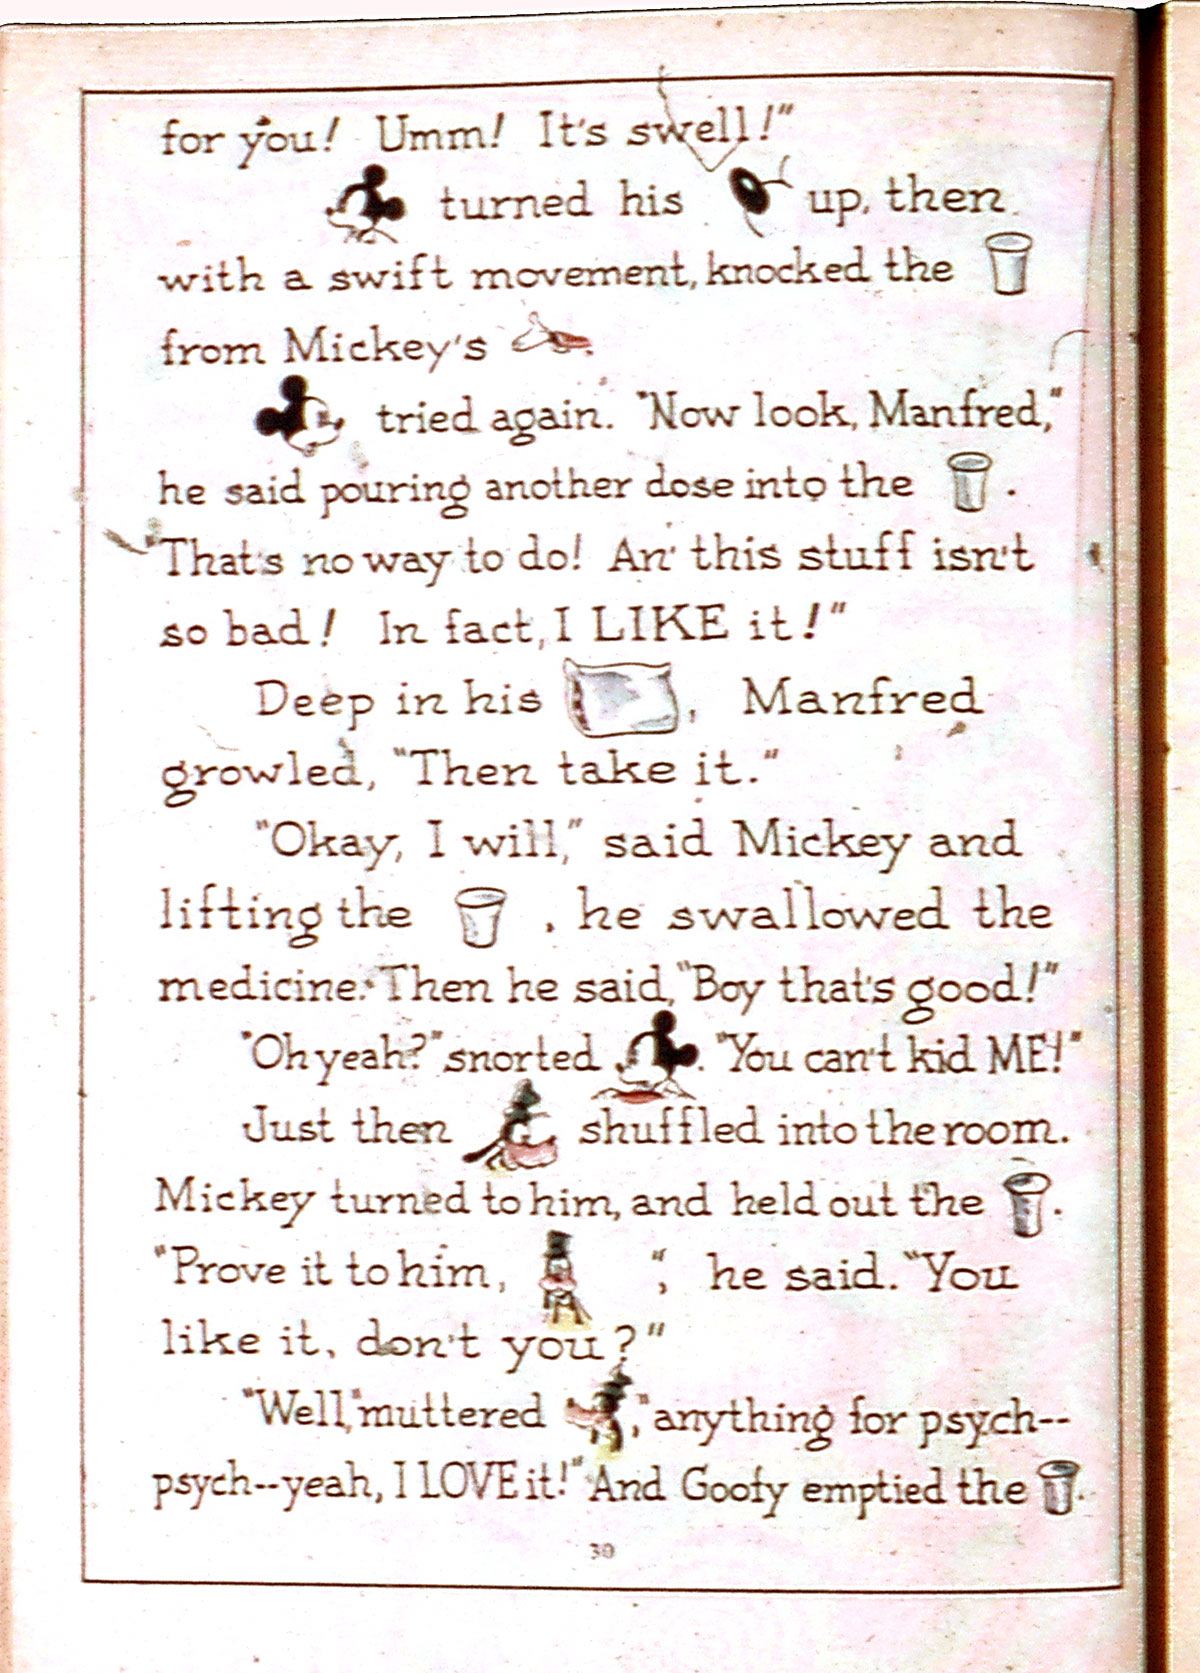 for you! Umm! It's swell!"
turned his up, then
with a swift movement, knocked the
from Mickey's
tried again. "Now look, Manfred,"
he said pouring another dose into the .
"That's no way to do! An' this stuff isn't
so bad! In fact, I LIKE it!"
Deep in his , Manfred
growled, "Then take it."
"Okay, I will," said Mickey and
lifting the , he swallowed the
medicine. Then he said, "Boy that's good!"
"Oh yeah?" snorted . "You can't kid ME!"
Just then shuffled into the room.
Mickey turned to him, and held out the .
"Prove it to him, ", he said. "You
like it, don't you?"
"Well," muttered , "anything for psych--
psych--yeah, I LOVE it!" And Goofy emptied the .
30